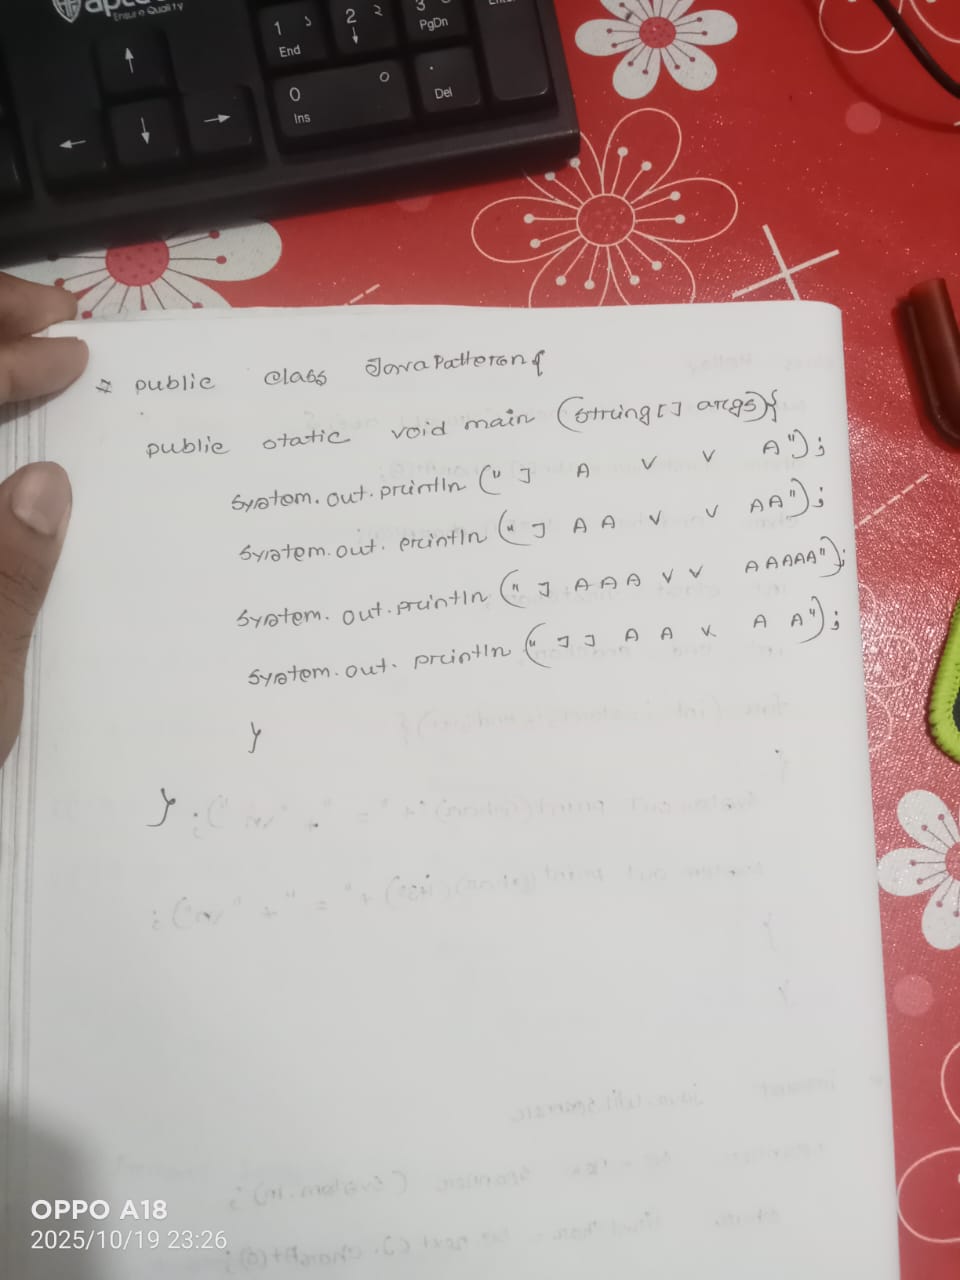 Ensure Quality
1
End
2
3
PgDn
0
Ins
.
Del
public class JavaPatteron{
public static void main (string[] args){
System.out.println (" J A V V A");
System.out.println (" J A A V V AA");
System.out.println (" J A A A V V AAAAA");
System.out.println (" J J A A V A A");
}
}
OPPO A18
2025/10/19 23:26